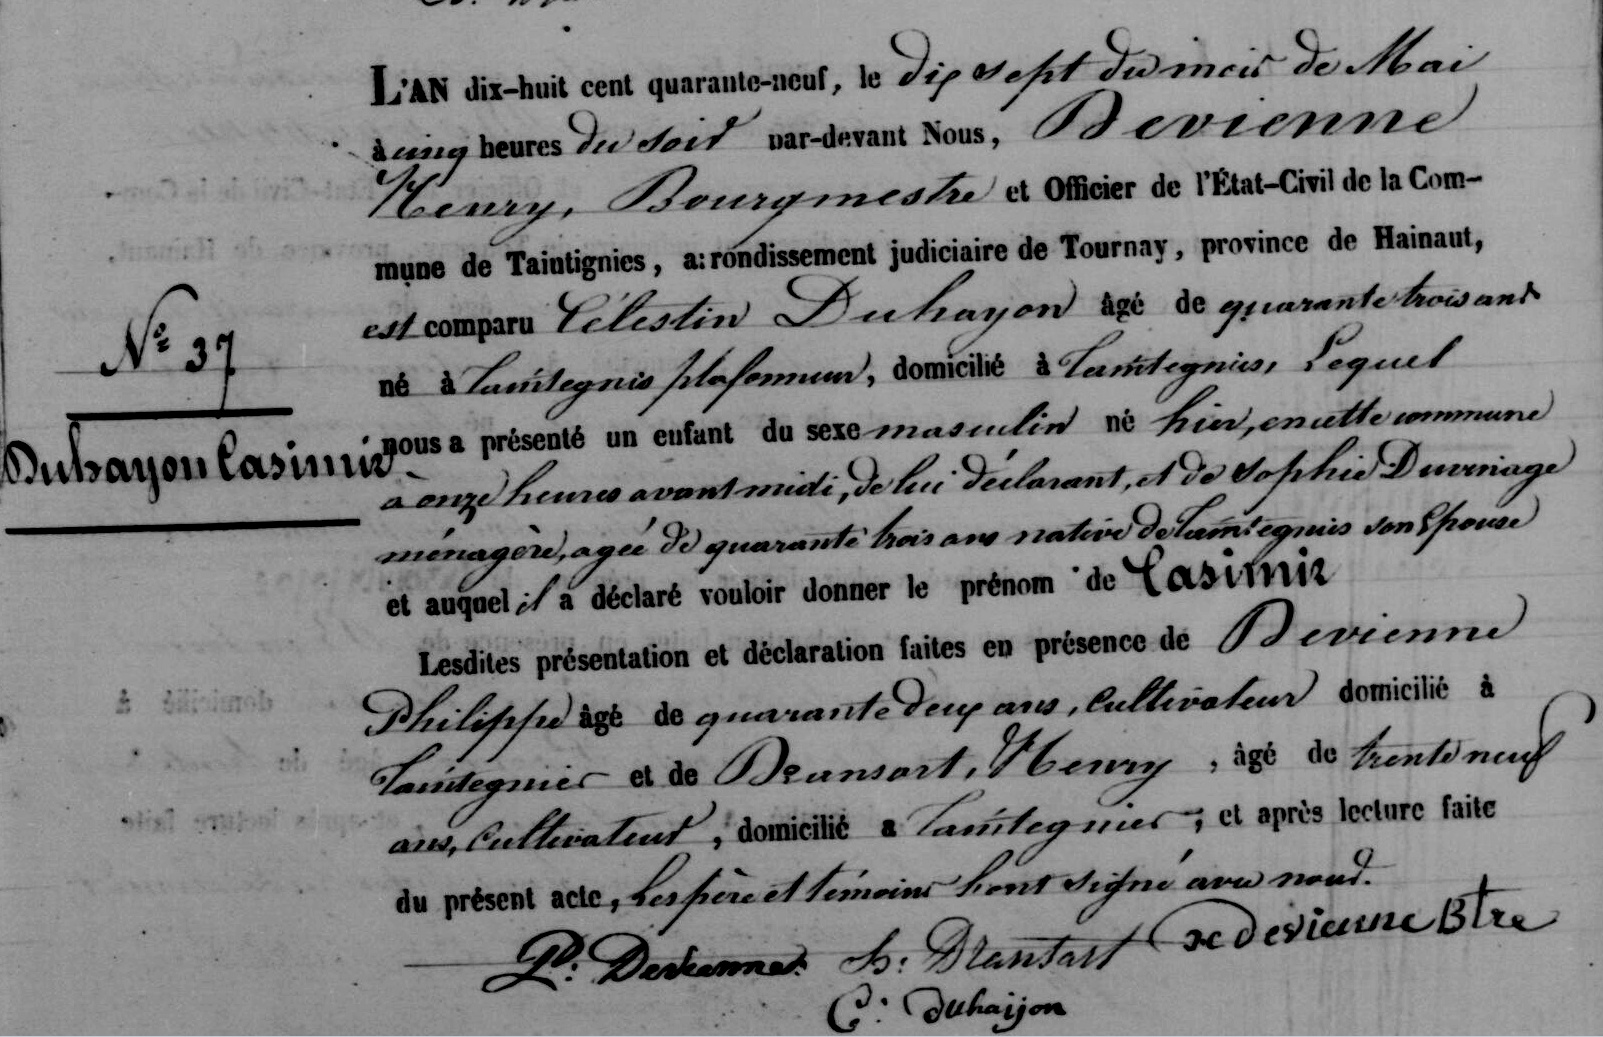 L'AN dix-huit cent quarante-neuf, le dix sept du mois de Mai
à cinq heures du soir par-devant Nous, Devienne
Henry, Bourgmestre et Officier de l'État-Civil de la Com-
mune de Taintignies, arrondissement judiciaire de Tournay, province de Hainaut,
est comparu Célestin Duhayon âgé de quarante trois ans
N° 37
né à Taintegnies plafonneur, domicilié à Taintegnies, Lequel
nous a présenté un enfant du sexe masculin né hier, en cette commune
Duhayon Casimir
à onze heures avant midi, de lui déclarant, et de Sophie Duvinage
ménagère, agée de quarante trois ans native de Taintegnies son Epouse
et auquel il a déclaré vouloir donner le prénom de Casimir
Lesdites présentation et déclaration faites en présence de Devienne
Philippe âgé de quarante deux ans, Cultivateur domicilié à
Taintegnies et de Dransart, Henry, âgé de trente neuf
ans, Cultivateur, domicilié a Taintegnies; et après lecture faite
du présent acte, Les père et témoins l'ont signé avec nous.
P: Devienne H: Dransart H Devienne Btre
C: Duhaijon